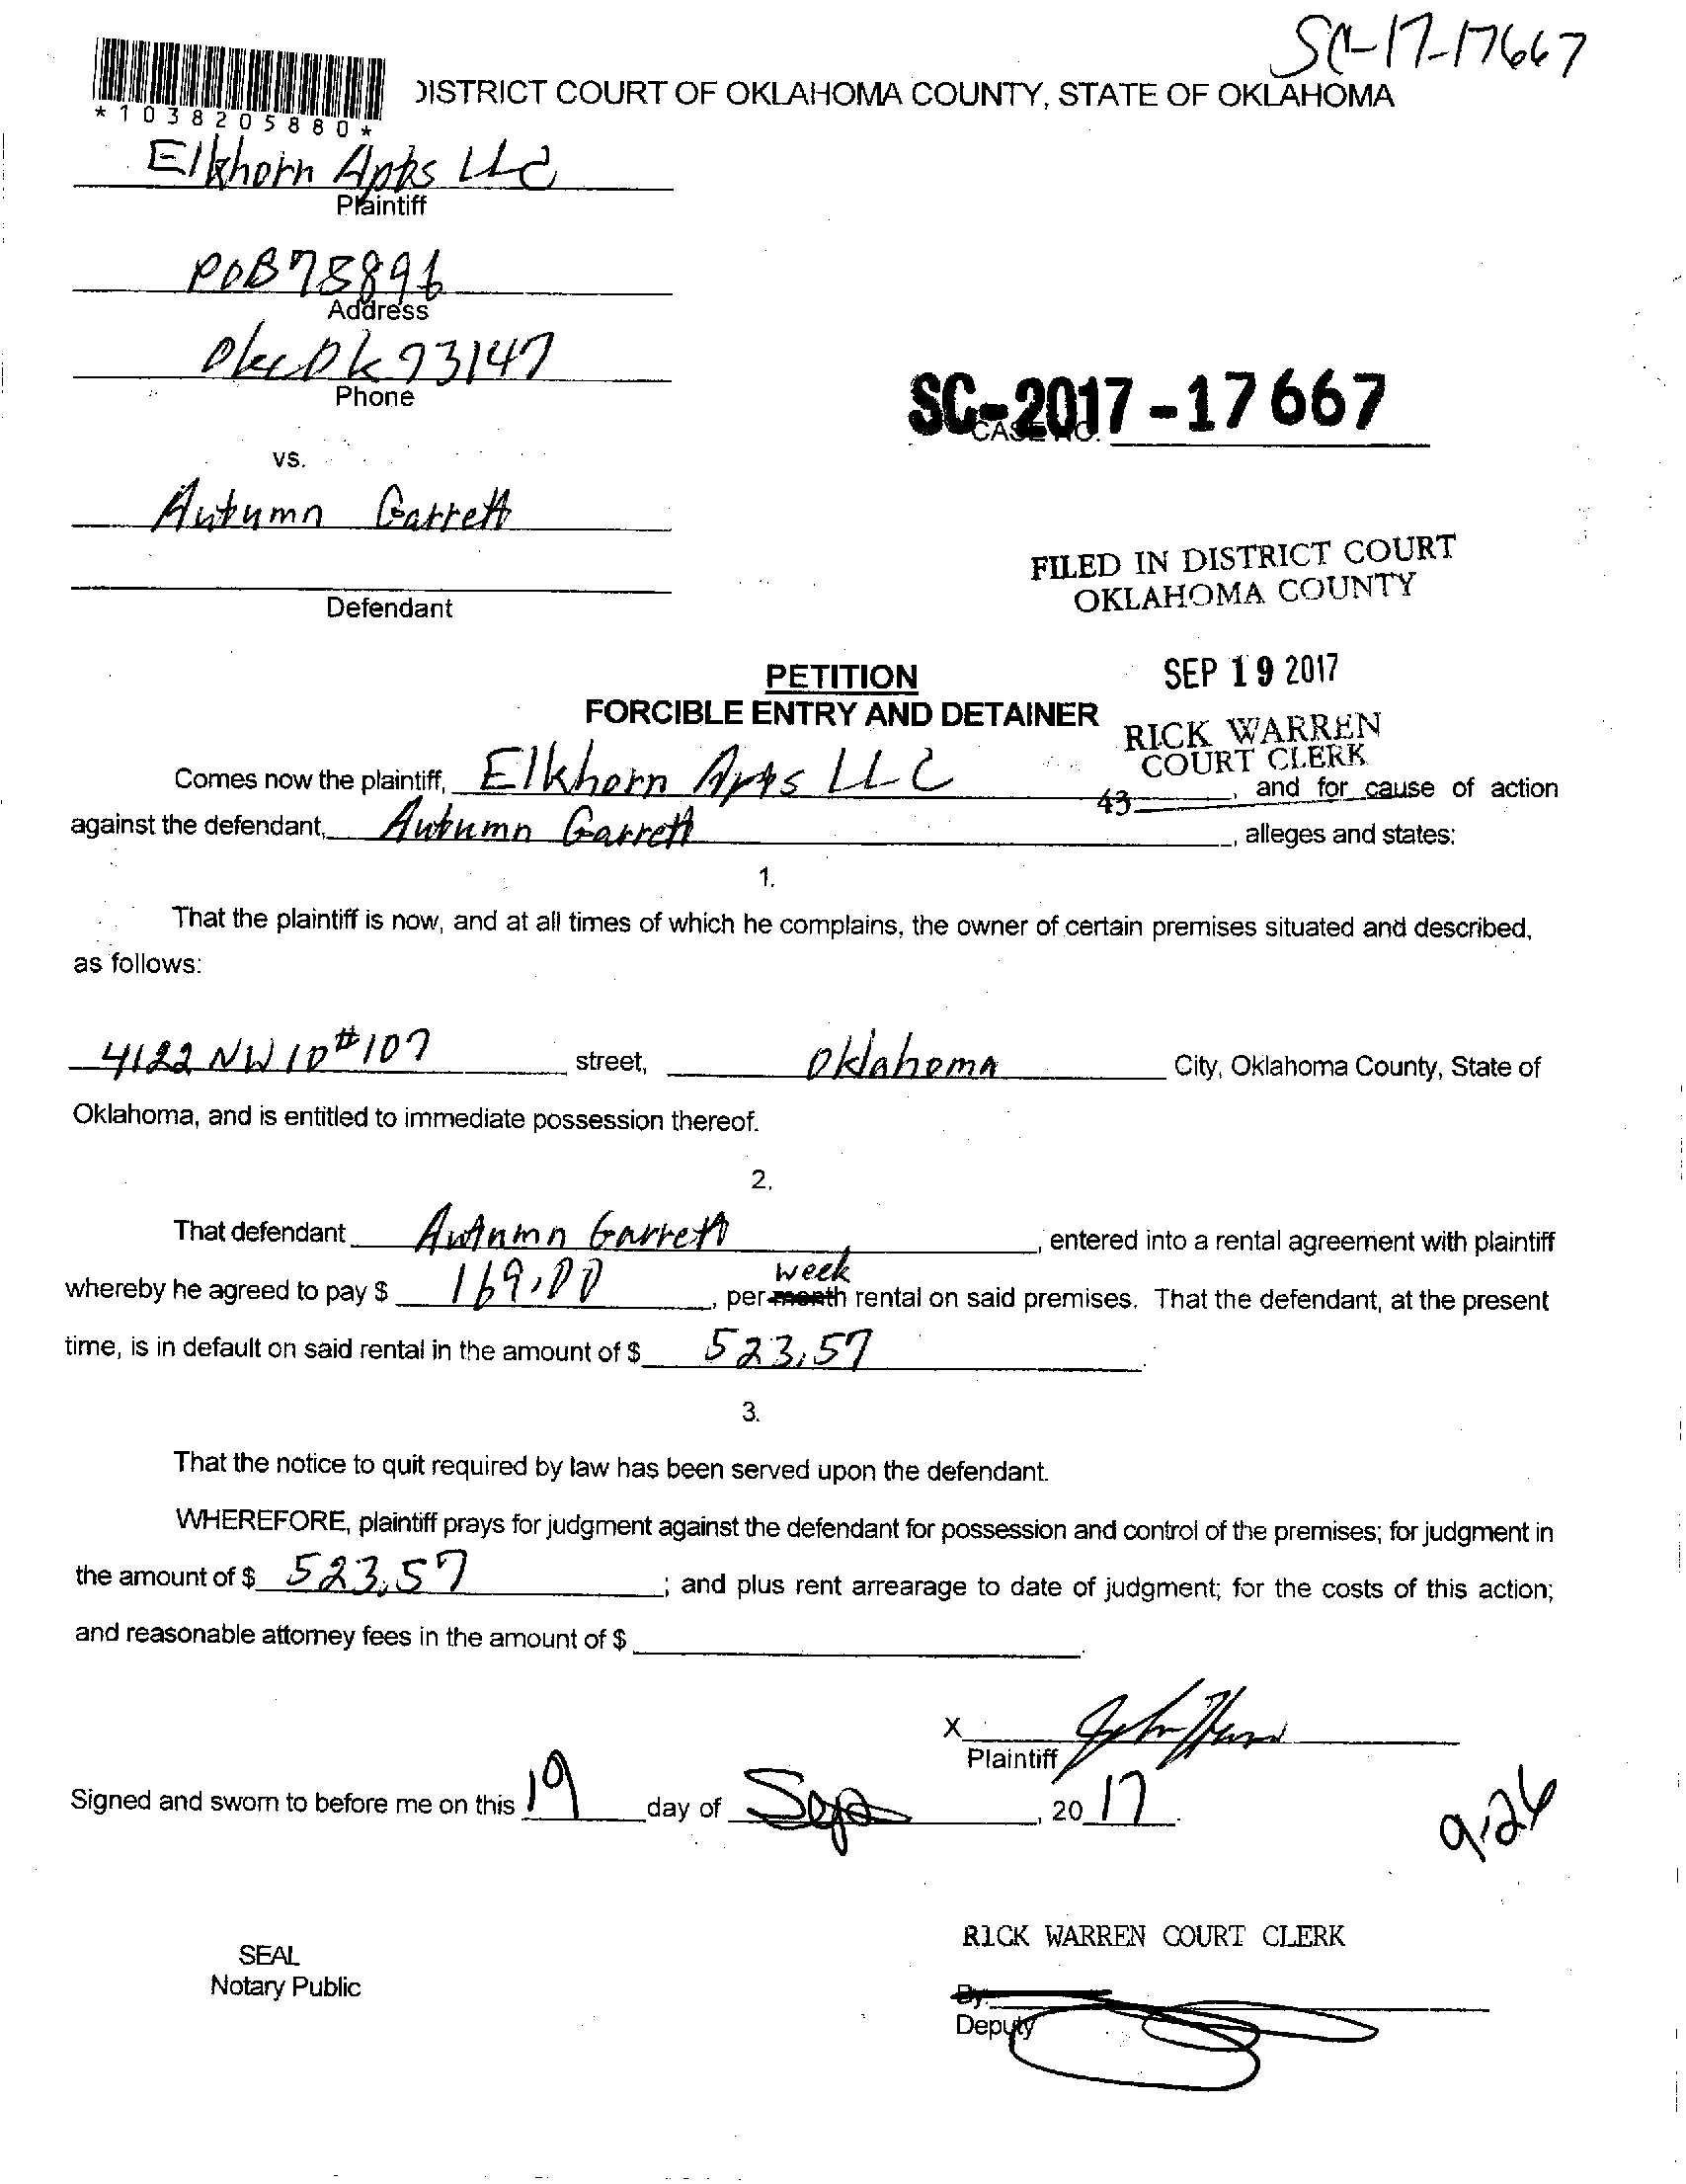 SC-17-17667
DISTRICT COURT OF OKLAHOMA COUNTY, STATE OF OKLAHOMA
*1038205880*
Elkhorn Apts LLC
Plaintiff
POB 75896
Address
Okc Ok 73147
Phone
SC-2017-17667
CASE NO.
vs.
Autumn Garrett
Defendant
FILED IN DISTRICT COURT
OKLAHOMA COUNTY
SEP 19 2017
RICK WARREN
COURT CLERK
43
PETITION
FORCIBLE ENTRY AND DETAINER
Comes now the plaintiff, Elkhorn Apts LLC, and for cause of action
against the defendant, Autumn Garrett, alleges and states:
1.
That the plaintiff is now, and at all times of which he complains, the owner of certain premises situated and described,
as follows:
4122 NW 10 #107 street, Oklahoma City, Oklahoma County, State of
Oklahoma, and is entitled to immediate possession thereof.
2.
That defendant Autumn Garrett, entered into a rental agreement with plaintiff
week
whereby he agreed to pay $ 169.00, per month rental on said premises. That the defendant, at the present
time, is in default on said rental in the amount of $ 523.57.
3.
That the notice to quit required by law has been served upon the defendant.
WHEREFORE, plaintiff prays for judgment against the defendant for possession and control of the premises; for judgment in
the amount of $ 523.57; and plus rent arrearage to date of judgment; for the costs of this action;
and reasonable attorney fees in the amount of $
X
Plaintiff
Signed and sworn to before me on this 19 day of Sep, 2017.
9.26
RICK WARREN COURT CLERK
SEAL
Notary Public
By:
Deputy